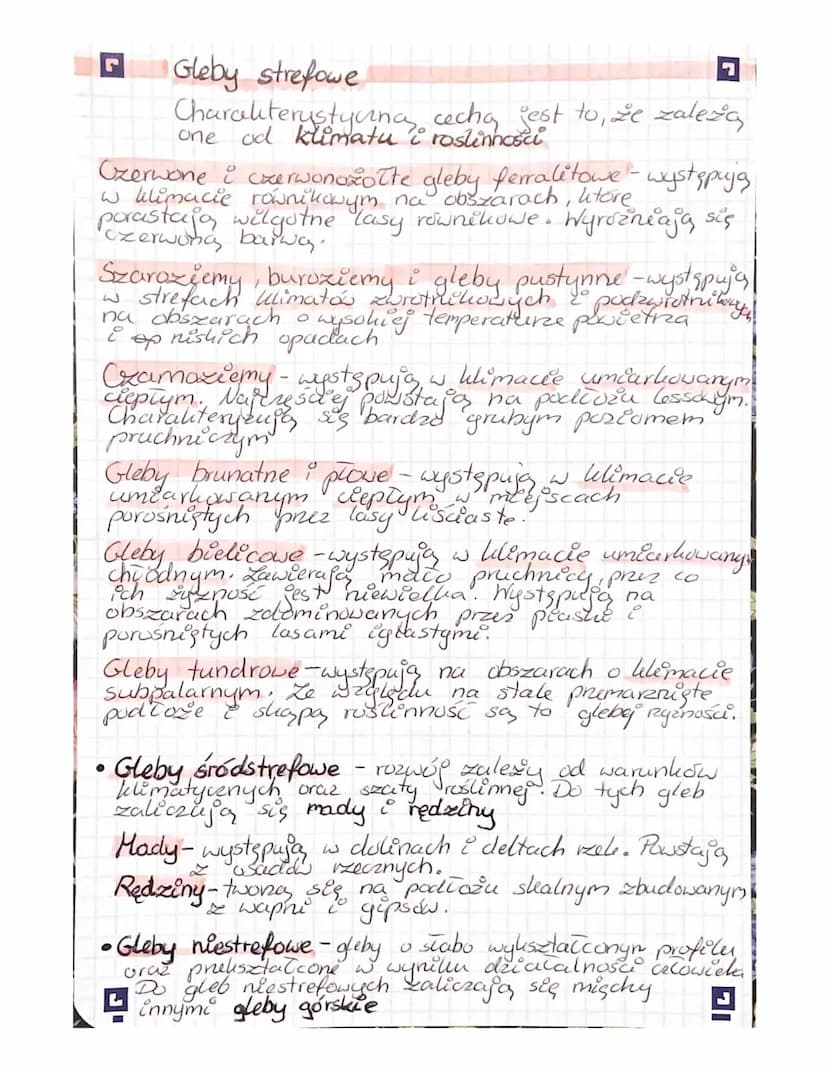 Gleby strefowe
Charakterystyczną cechą jest to, że zależą
one od klimatu i roślinności
Czerwone i czerwonożółte gleby ferralitowe - występują
w klimacie równikowym na obszarach, które
porastają wilgotne lasy równikowe. Wyróżniają się
czerwoną barwą.
Szaroziemy, buroziemy i gleby pustynne - występują
w strefach klimatów zwrotnikowych i podzwrotnikowych
na obszarach o wysokiej temperaturze powietrza
i op niskich opadach
Czarnoziemy - występują w klimacie umiarkowanym
ciepłym. Najczęściej powstają na podłożu lessowym.
Charakteryzują się bardzo grubym poziomem
pruchniczym
Gleby brunatne i płowe - występują w klimacie
umiarkowanym ciepłym w miejscach
porośniętych przez lasy liściaste.
Gleby bielicowe - występują w klimacie umiarkowanym
chłodnym. Zawierają mało pruchnicy, przez co
ich żyzność jest niewielka. Występują na
obszarach zdominowanych przez piaski i
porośniętych lasami iglastymi.
Gleby tundrowe - występują na obszarach o klimacie
subpalarnym. Ze względu na stale przemarznięte
podłoże i skąpą roślinność są to glebej żyzności.
• Gleby śródstrefowe - rozwój zależy od warunków
klimatycznych oraz szaty roślinnej. Do tych gleb
zaliczują się mady i rędziny
Mady - występują w dolinach i deltach rzek. Powstają
z osadów rzecznych.
Rędziny - tworzą się na podłożu skalnym zbudowanym
z wapni i gipsów.
• Gleby niestrefowe - gleby o słabo wykształconym profilu
oraz przekształcone w wyniku działalności człowieka
Do gleb niestrefowych zaliczają się między
innymi gleby górskie